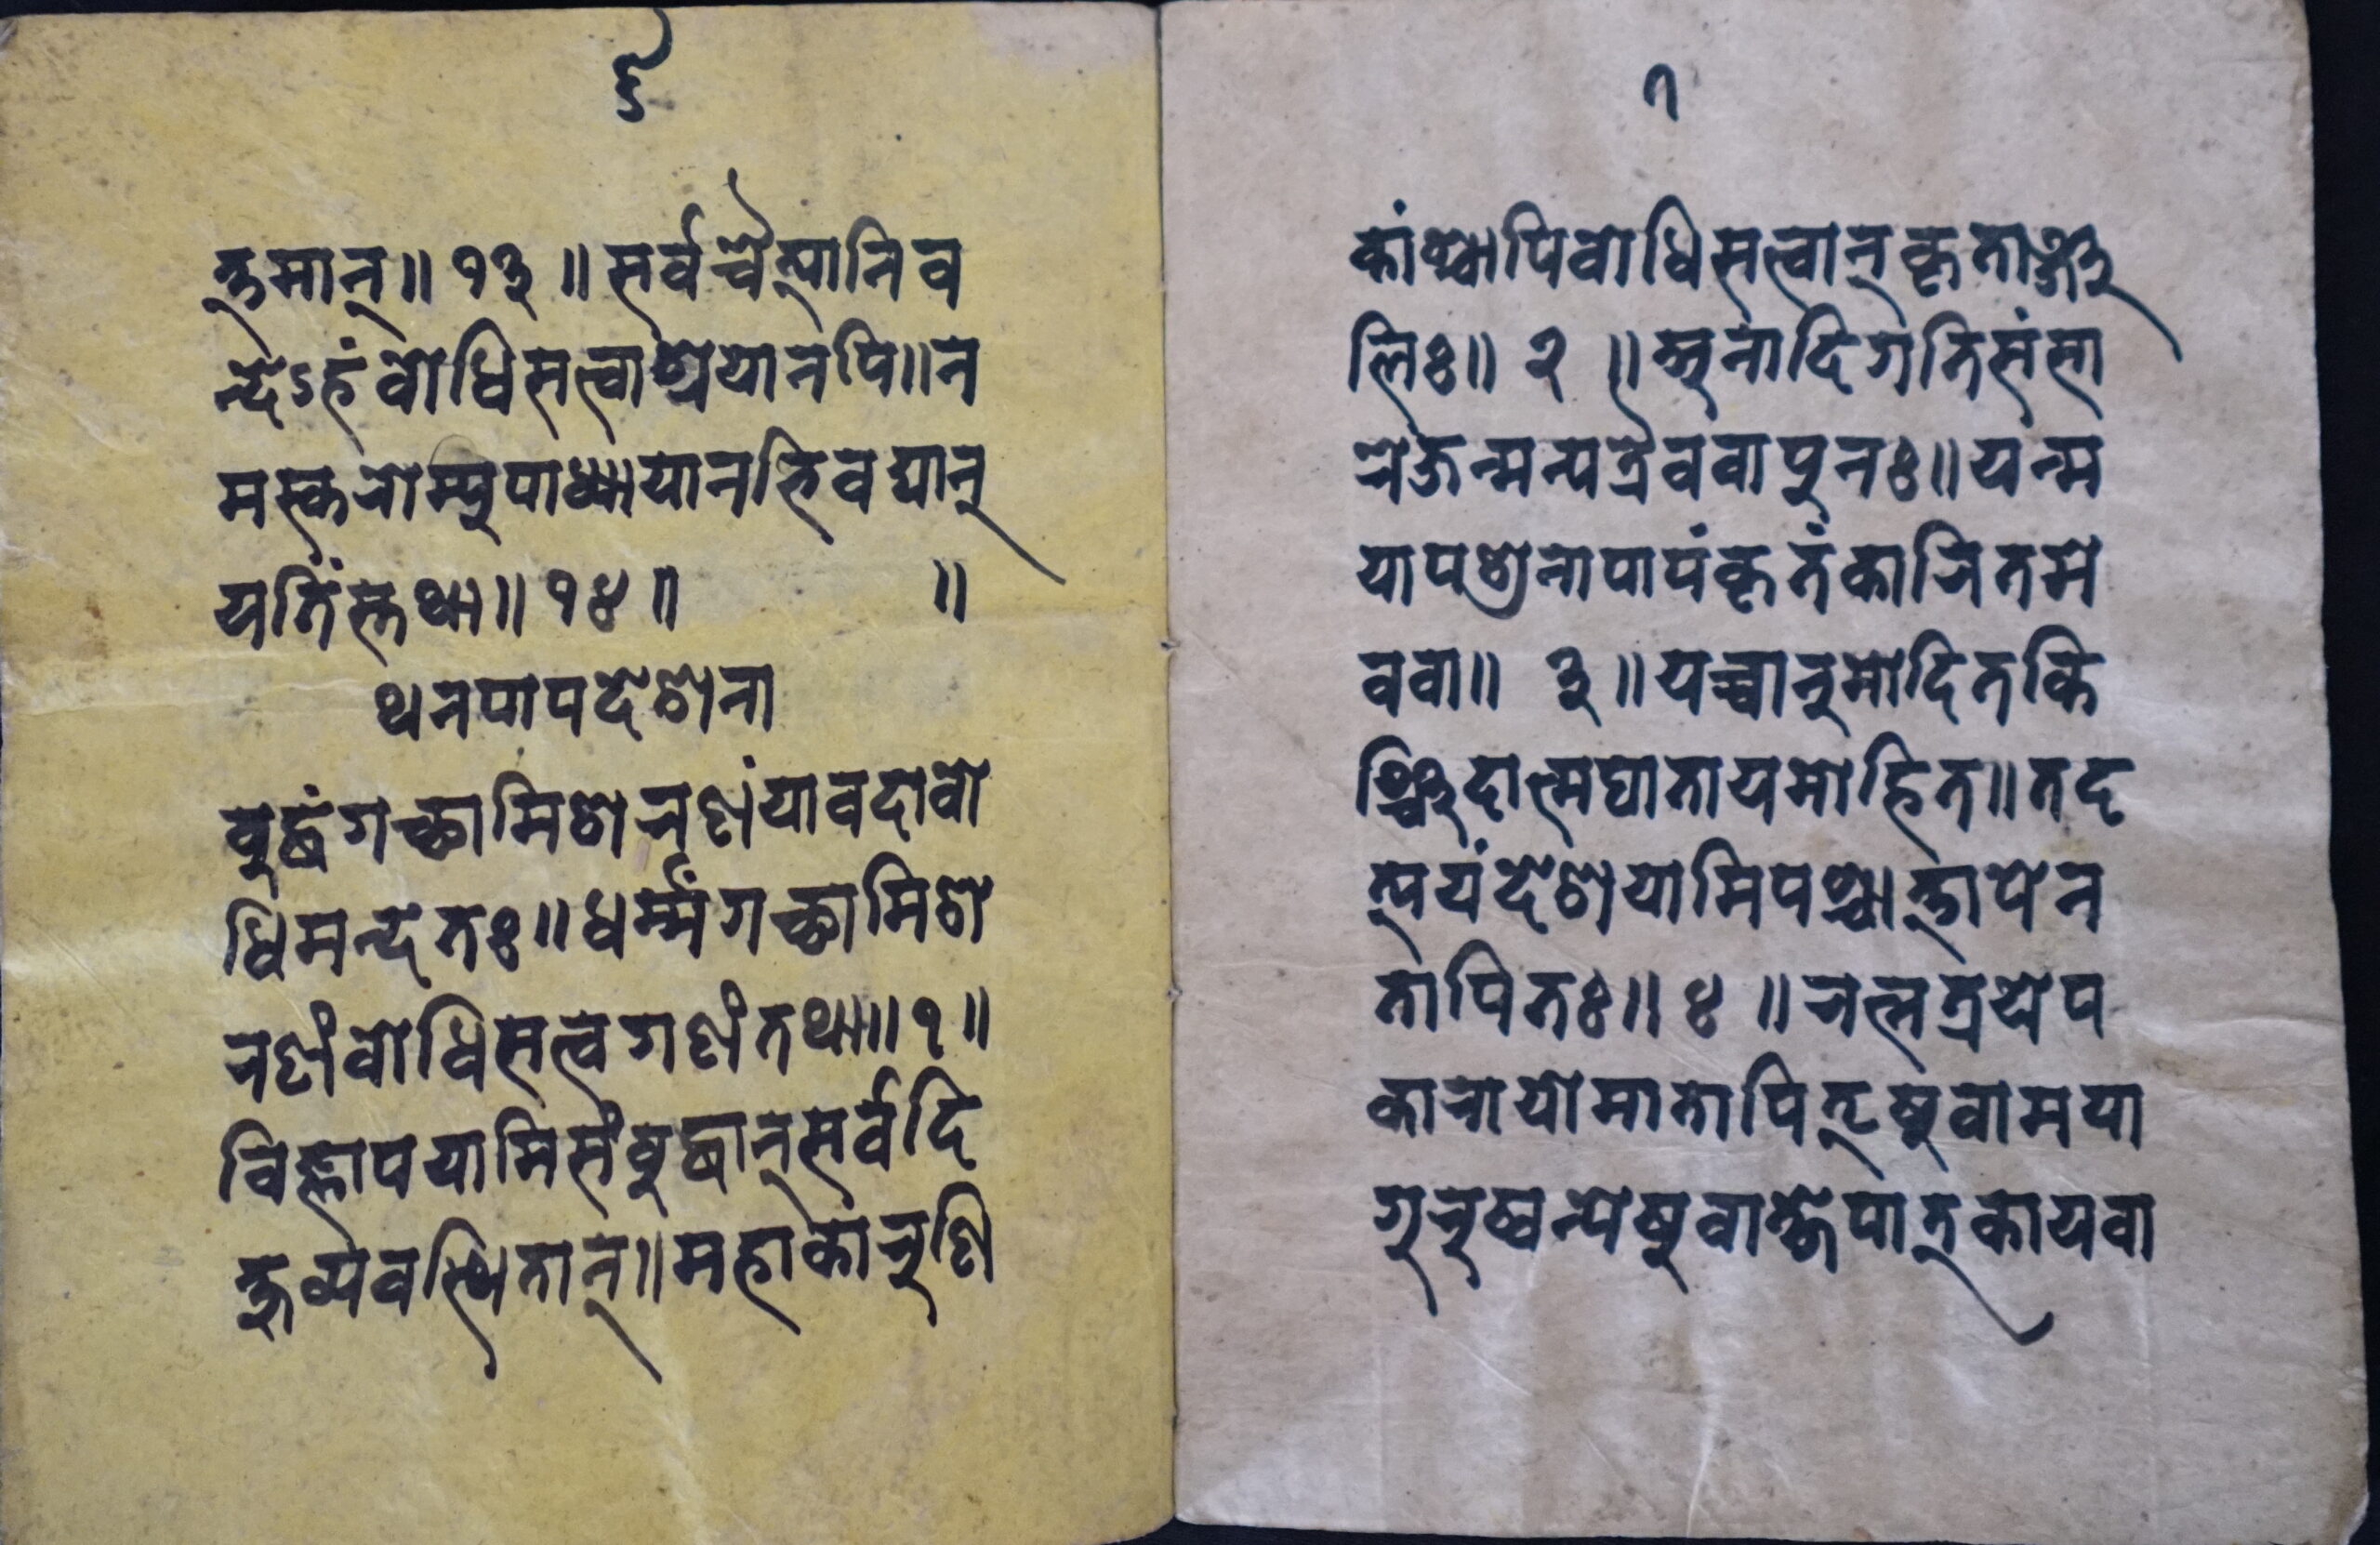 ६
त्तमान्॥ १३ ॥ सर्वचैत्यानिव
न्देऽहंवोधिसत्त्वाश्रयानपि॥न
मस्करोम्युपाध्यायानभिवद्यान्
यतिंस्तथा॥ १४ ॥ ॥
थनपापदेशना
वुद्धंगच्छामिशरणंयावदावो
धिमन्दतः॥धर्म्मंगच्छामिश
रणंवोधिसत्वगणंतथा॥१॥
विज्ञापयामिसंवुद्धान्सर्वदि
क्षुव्यवस्थितान्॥महाकारुणि
७
कांश्चापिवोधिसत्त्वान्कृताञ्ज
लिः॥ २ ॥अनादिगतिसंसा
रेजन्मन्यत्रैववापुनः॥यन्म
यापशुनापापंकृतंकारितमे
ववा॥ ३ ॥यच्चानुमोदितकि
ञ्चिदात्मघातायमोहित॥तद
त्ययंदेशयामिपश्चात्तापेन
तापितः॥ ४ ॥रत्नत्रयेप
कारायोमातापितृषुवामया
गुरुष्वन्येषुवाक्षेपात्कायवा